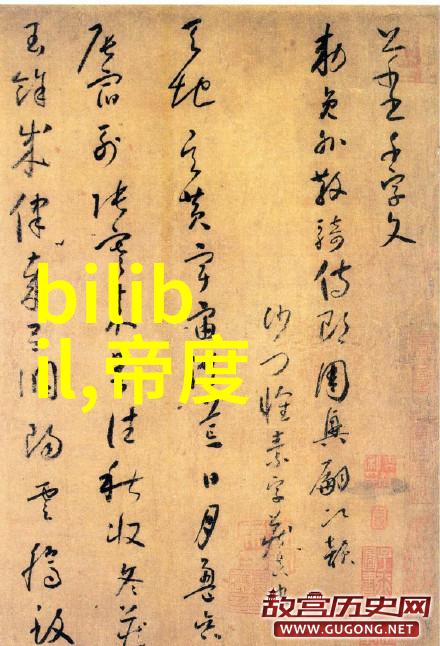 草書千字文
勅員外散騎侍郎周興嗣次韻
沙門懷素字藏真書
天地玄黄宇宙洪荒日月盈昃
辰宿列張寒來暑往秋收冬藏
閏餘成歲律吕調陽雲騰致
bilib
il,帝度
故宫历史网
WWW.GUGONG.NET